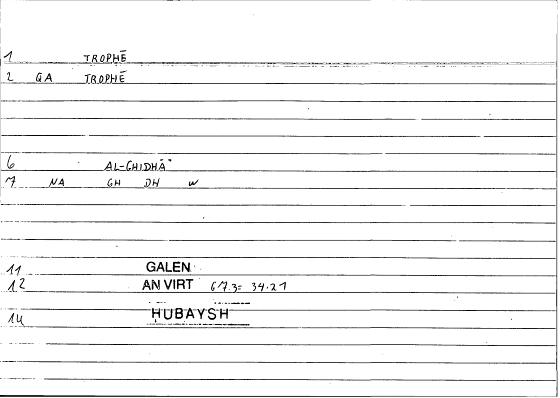 1 TROPHĒ
2 GA TROPHĒ
6 AL-GHIDHĀʾ
7 NA GH DH W
11 GALEN
12 AN VIRT 67.3= 34.21
14 ḤUBAYSH